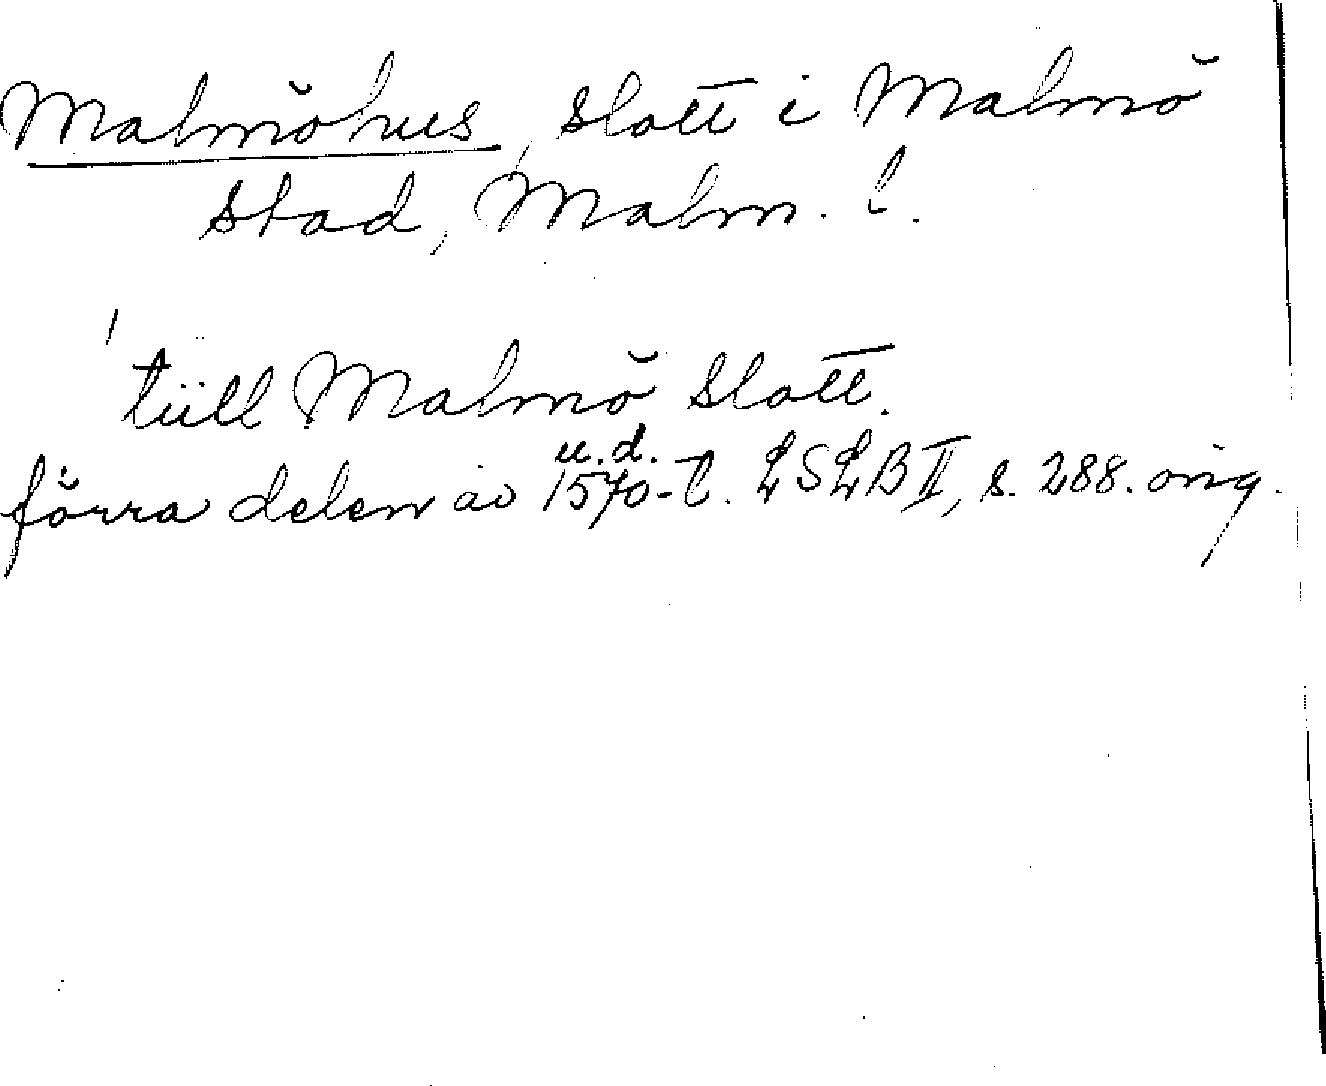 Malmöhus, slott i Malmö
stad, Malm. l.
tiill Malmö Slott.
u.d.
förra delen av 1570-t. LSLB II, s. 288. orig.